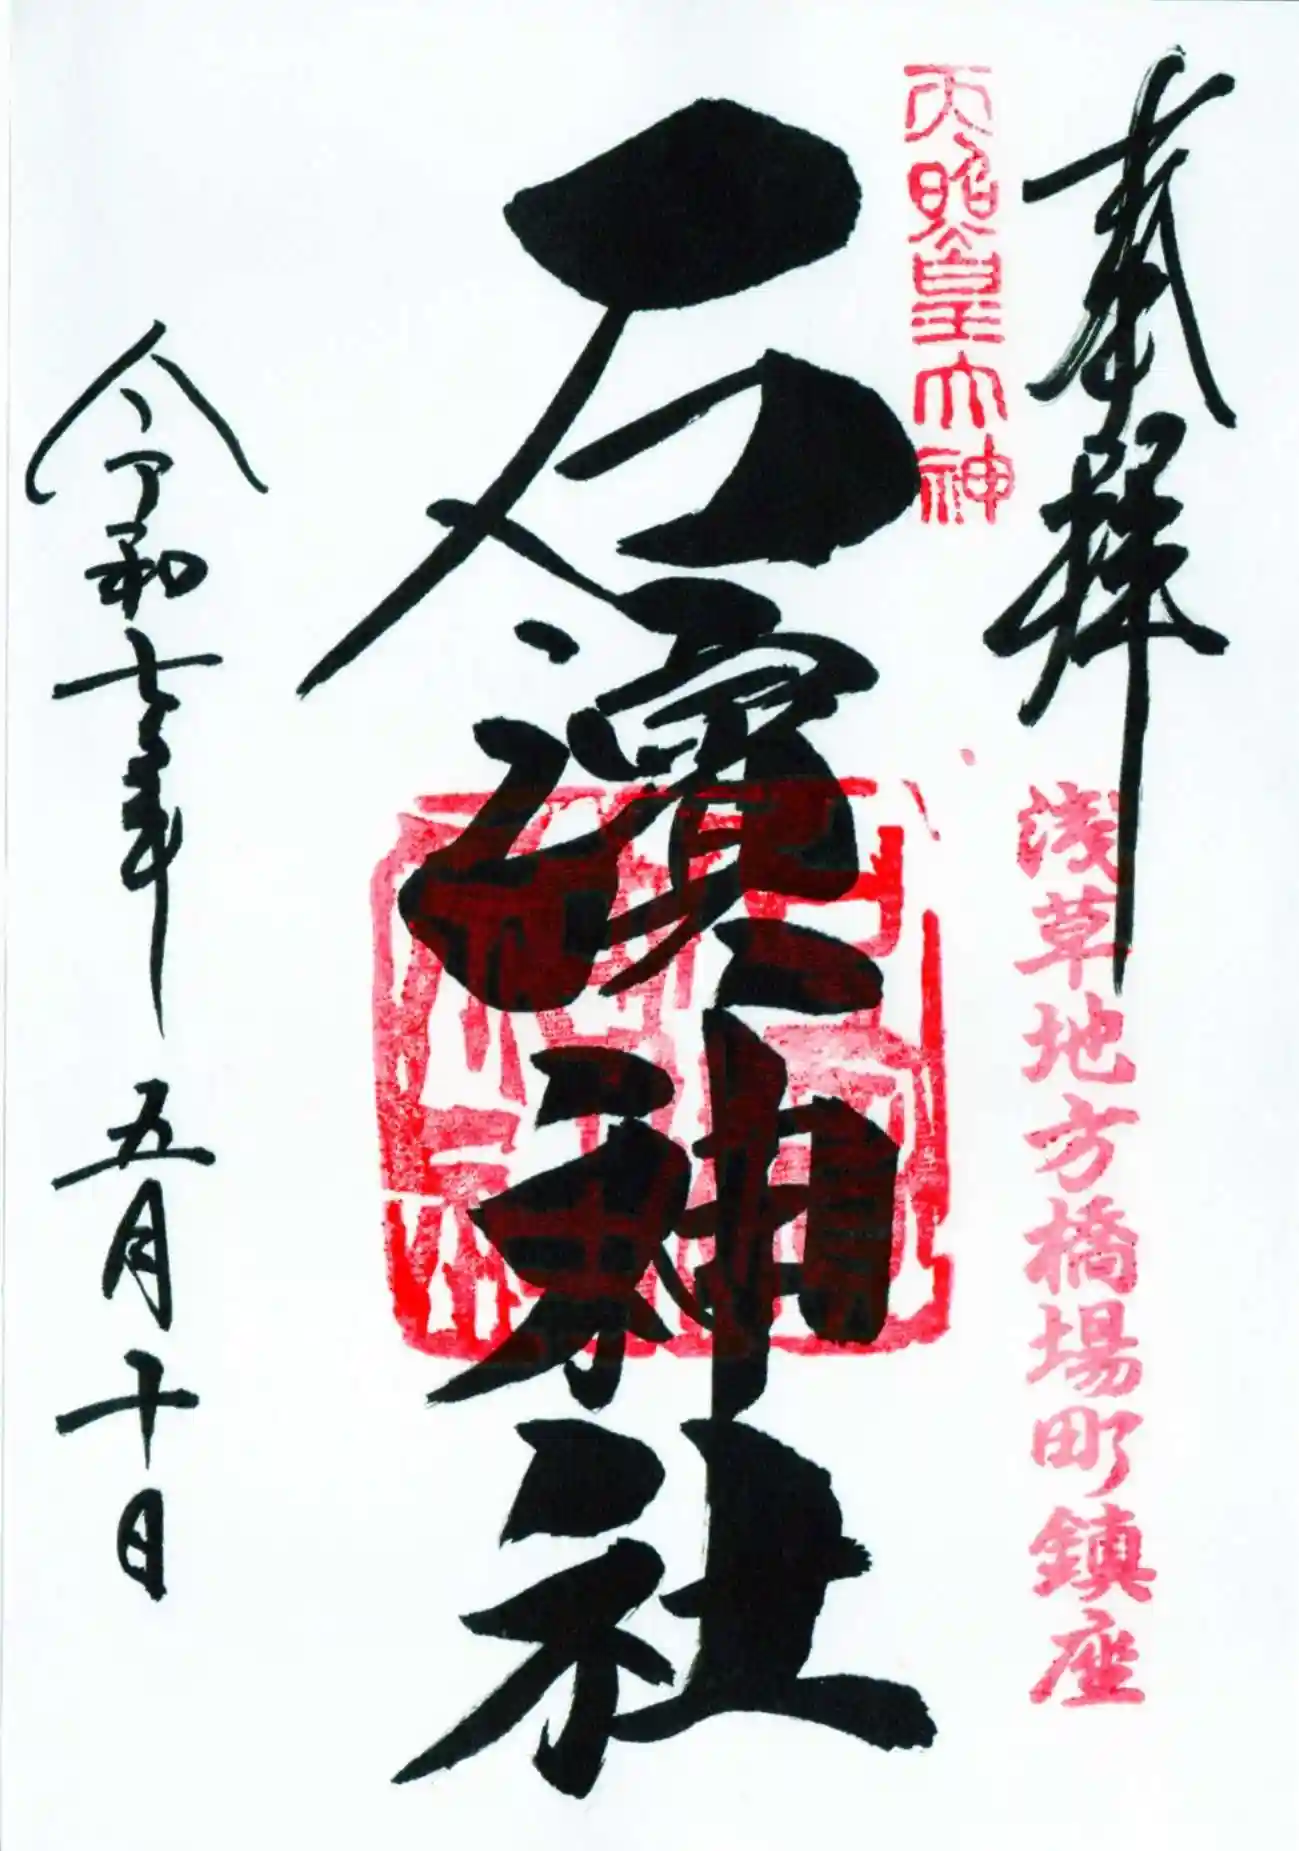 奉拝
天照皇大神
浅草地方橋場町鎮座
石濱神社
令和七年 五月十日